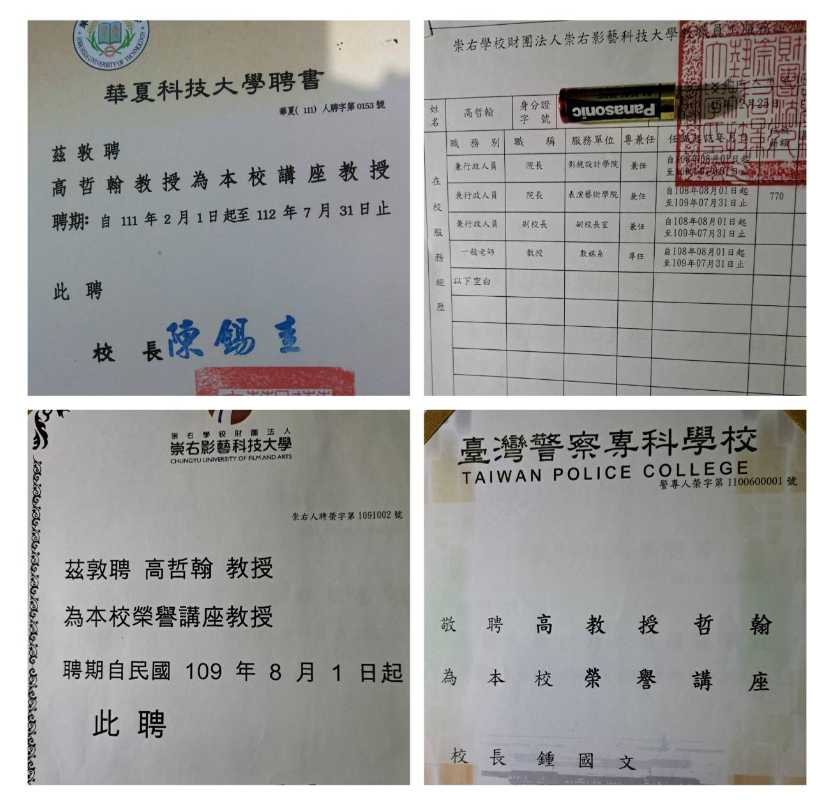 華夏科技大學聘書
華夏(111)人聘字第0153號
茲敦聘
高哲翰教授為本校講座教授
聘期:自111年2月1日起至112年7月31日止
此聘
校長陳錫圭
崇右學校財團法人崇右影藝科技大學
Panasonic
姓名 高哲翰 身分證字號
在校服務經歷
職務別 職稱 服務單位 專兼任
兼行政人員 院長 影視設計學院 兼任
兼行政人員 院長 表演藝術學院 兼任 自108年08月01日起至109年07月31日止 770
兼行政人員 副校長 副校長室 兼任 自108年08月01日起至109年07月31日止
一般老師 教授 數媒系 專任 自108年08月01日起至109年07月31日止
以下空白
崇右學校財團法人
崇右影藝科技大學
CHUNGYU UNIVERSITY OF FILM AND ARTS
崇右人聘榮字第1091002號
茲敦聘 高哲翰 教授
為本校榮譽講座教授
聘期自民國 109 年 8 月 1 日起
此聘
臺灣警察專科學校
TAIWAN POLICE COLLEGE
警專人榮字第1100600001號
敬聘高教授哲翰
為本校榮譽講座
校長鍾國文